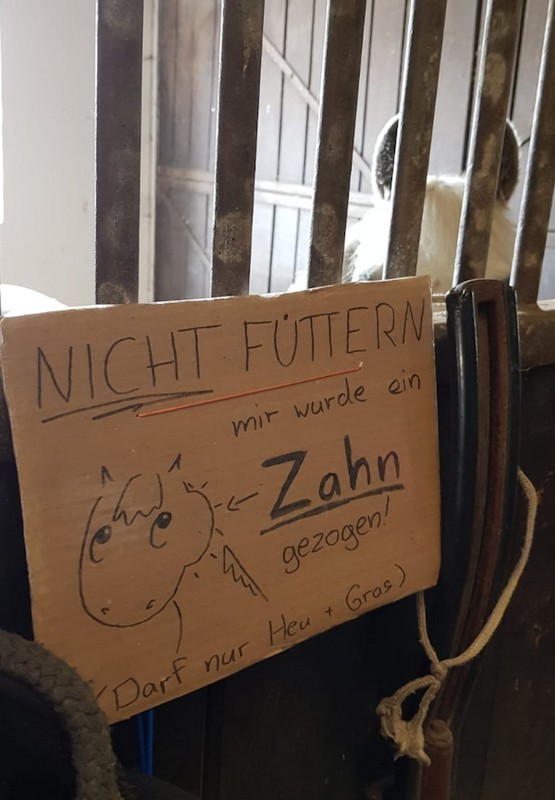 NICHT FÜTTERN
mir wurde ein
Zahn
gezogen!
(Darf nur Heu + Gras)